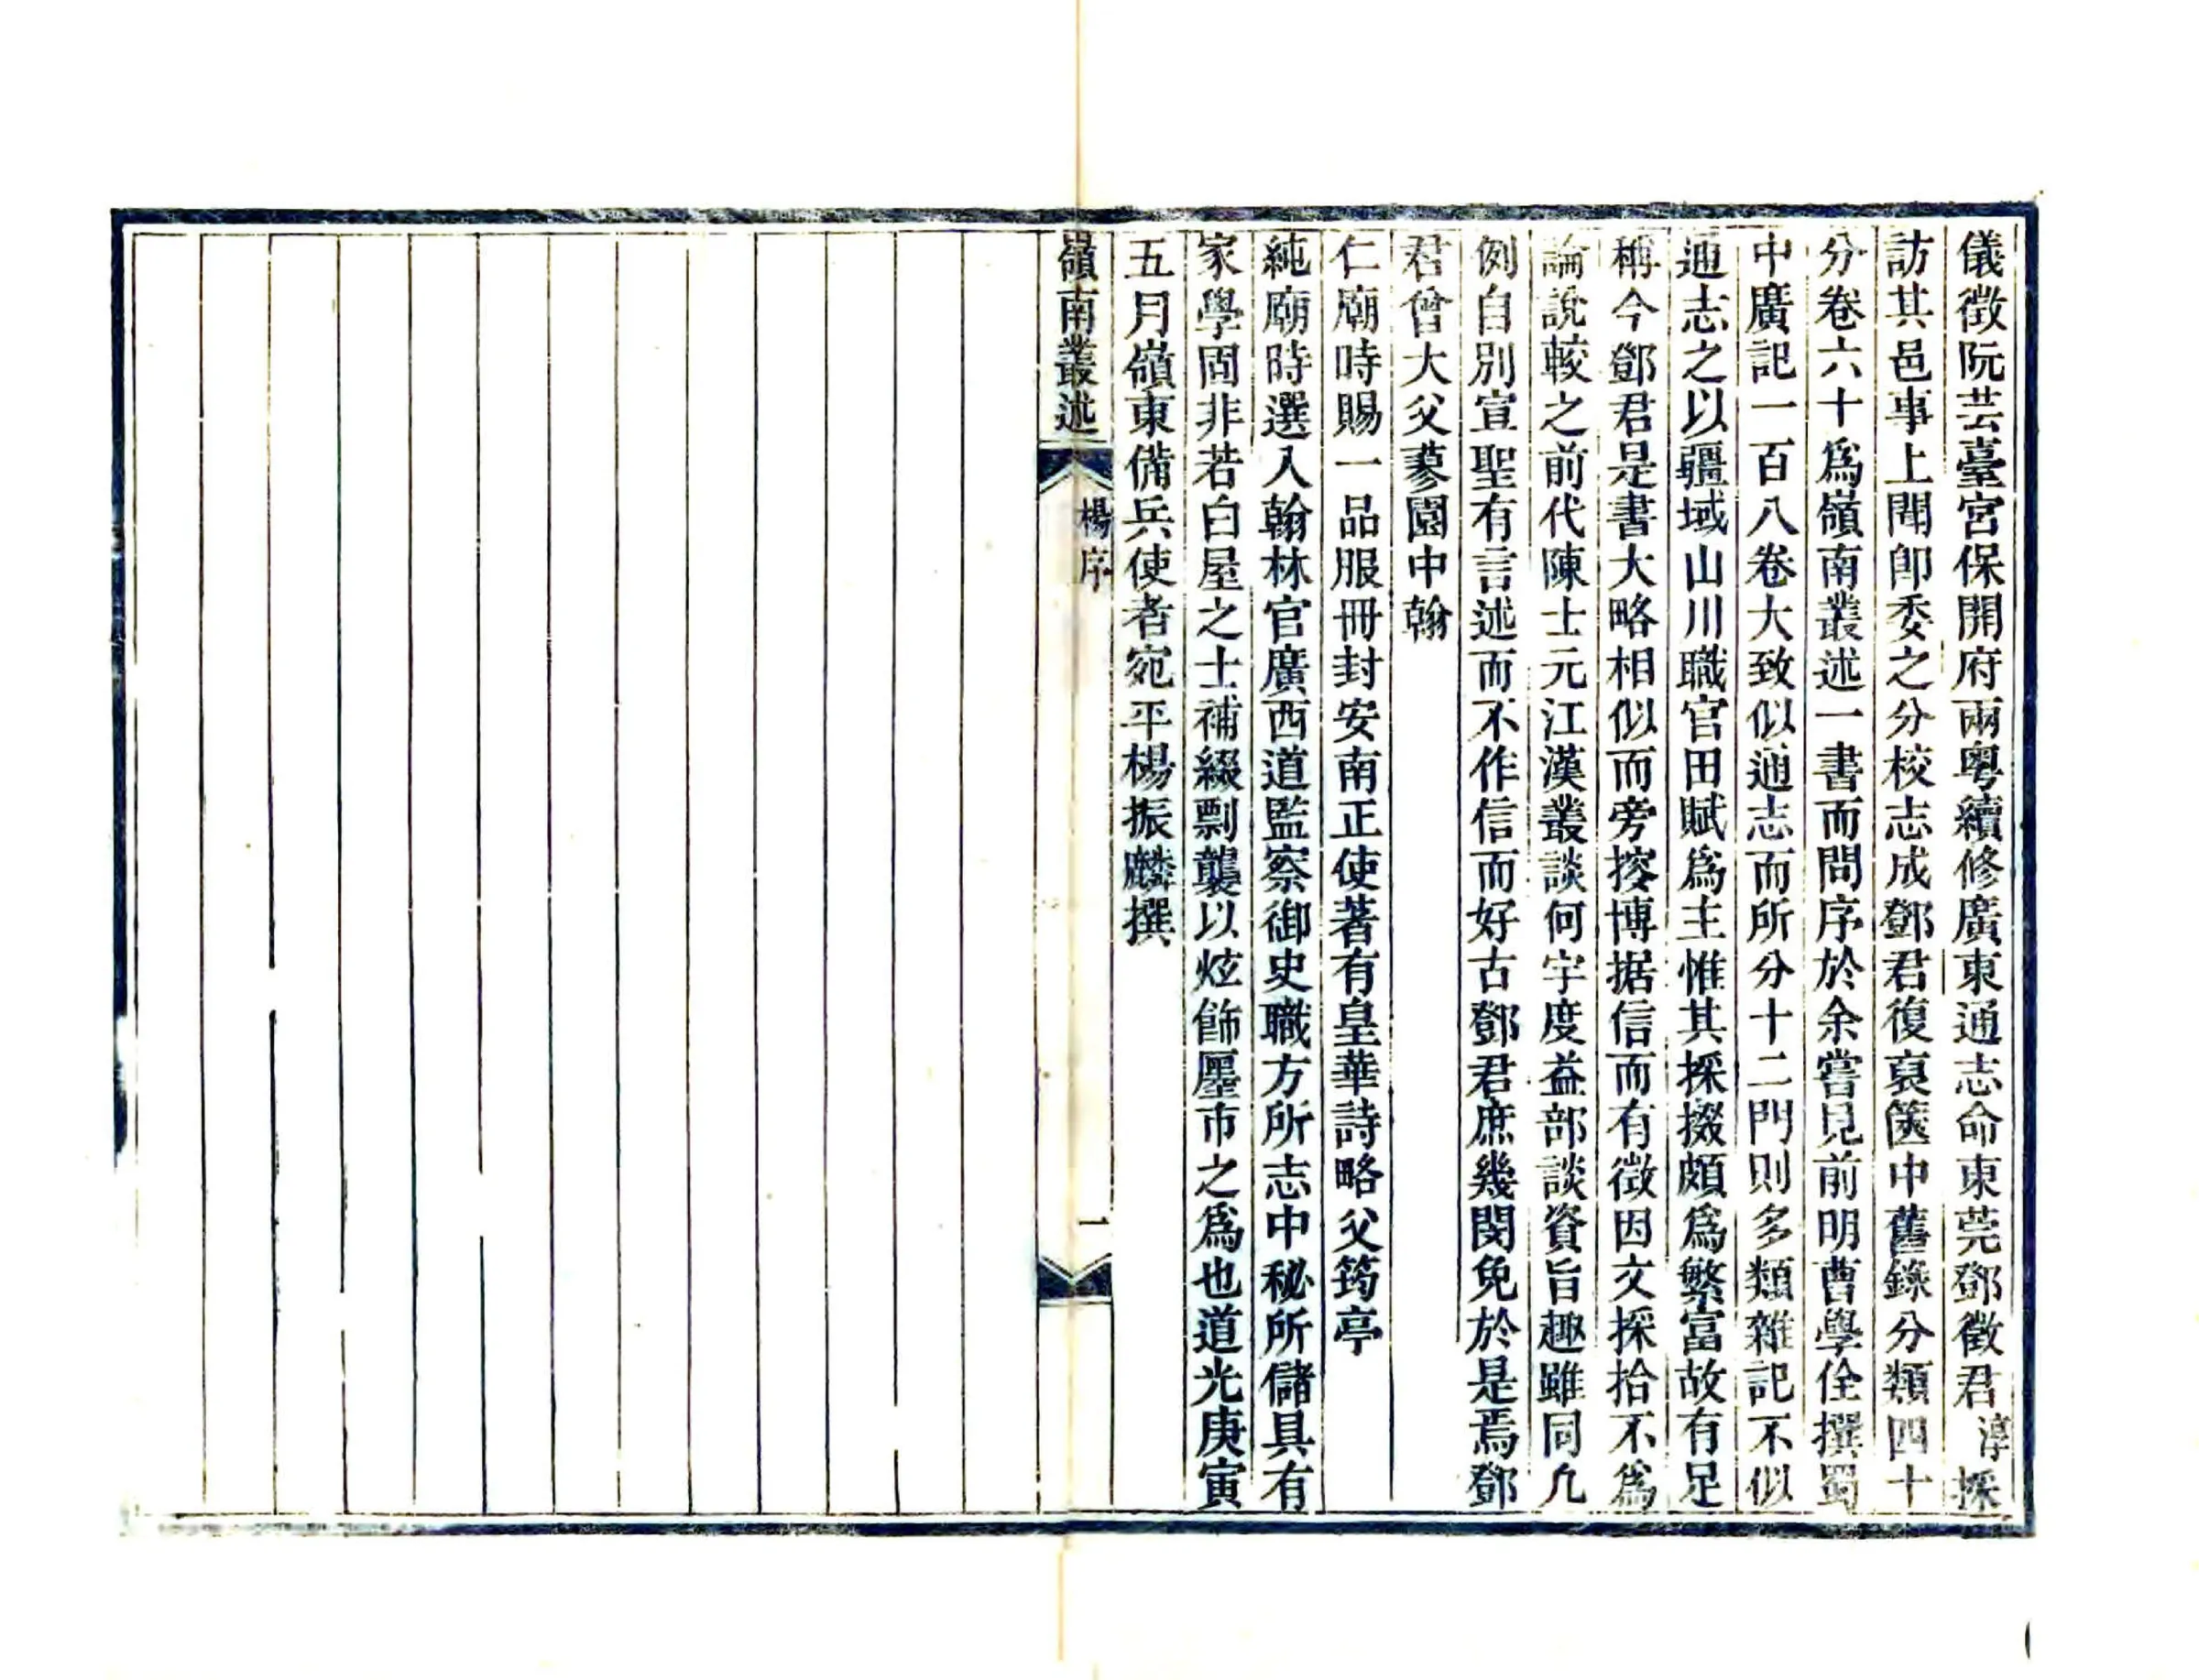 儀徵阮芸臺宮保開府兩粤續修廣東通志命東莞鄧徵君淳採
訪其邑事上聞卽委之分校志成鄧君復裒篋中舊錄分類四十
分卷六十爲嶺南叢述一書而問序於余嘗見前明曹學佺撰蜀
中廣記一百八卷大致似通志而所分十二門則多類雜記不似
通志之以疆域山川職官田賦爲主惟其採掇頗爲繁富故有足
稱今鄧君是書大略相似而旁搜博据信而有徵因文採拾不爲
論說較之前代陳士元江漢叢談何宇度益部談資旨趣雖同凢
例自別宣聖有言述而不作信而好古鄧君庶幾閔免於是焉鄧
君曾大父蓼園中翰
仁廟時賜一品服冊封安南正使著有皇華詩略父筠亭
純廟時選入翰林官廣西道監察御史職方所志中秘所儲具有
家學固非若白屋之士補綴剽襲以炫飾壥市之爲也道光庚寅
五月嶺東備兵使者宛平楊振麟撰
嶺南叢述
楊序
一